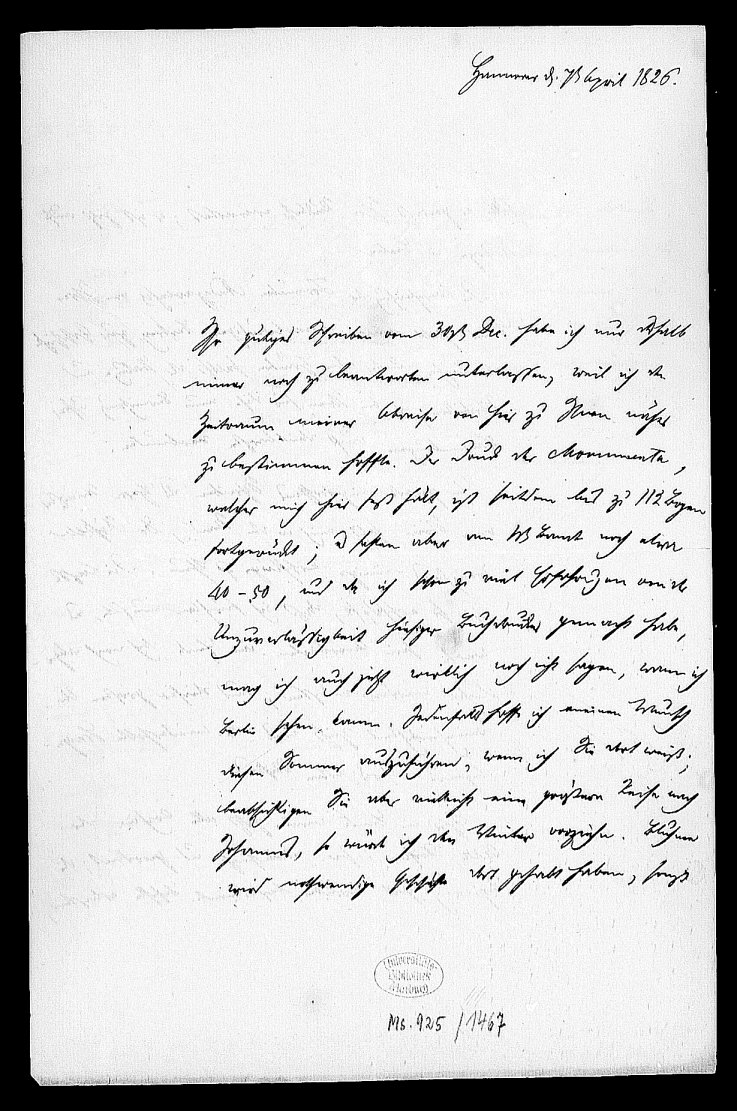 Hannover d. 7t April 1826.
Ihr gütiges Schreiben vom 30st Dec. habe ich nur deshalb
immer noch zu beantworten unterlassen, weil ich den
Zeitraum meiner Abreise von hier zu Ihnen näher
zu bestimmen hoffte. Der Druck der Monumenta,
welcher mich hier fest hält, ist seitdem bis zu 112 Bogen
fortgerückt; es fehlen aber am Bande noch etwa
40-50, und da ich schon zu viel Erfahrungen von der
Unzuverlässigkeit hiesiger Buchdrucker gemacht habe,
mag ich auch jetzt wirklich noch nicht sagen, wann ich
Berlin sehen kann. Jedenfalls hoffe ich meinen Wunsch
diesen Sommer auszuführen, wenn ich Sie dort weiß;
beabsichtigen Sie aber vielleicht eine größere Reise nach
Johannis, so würde ich den Winter vorziehn. Blühme
wird nothwendige Geschäfte dort gehabt haben, sonst
Universitäts-
Bibliothek
Marburg
Ms. 925 / 1467